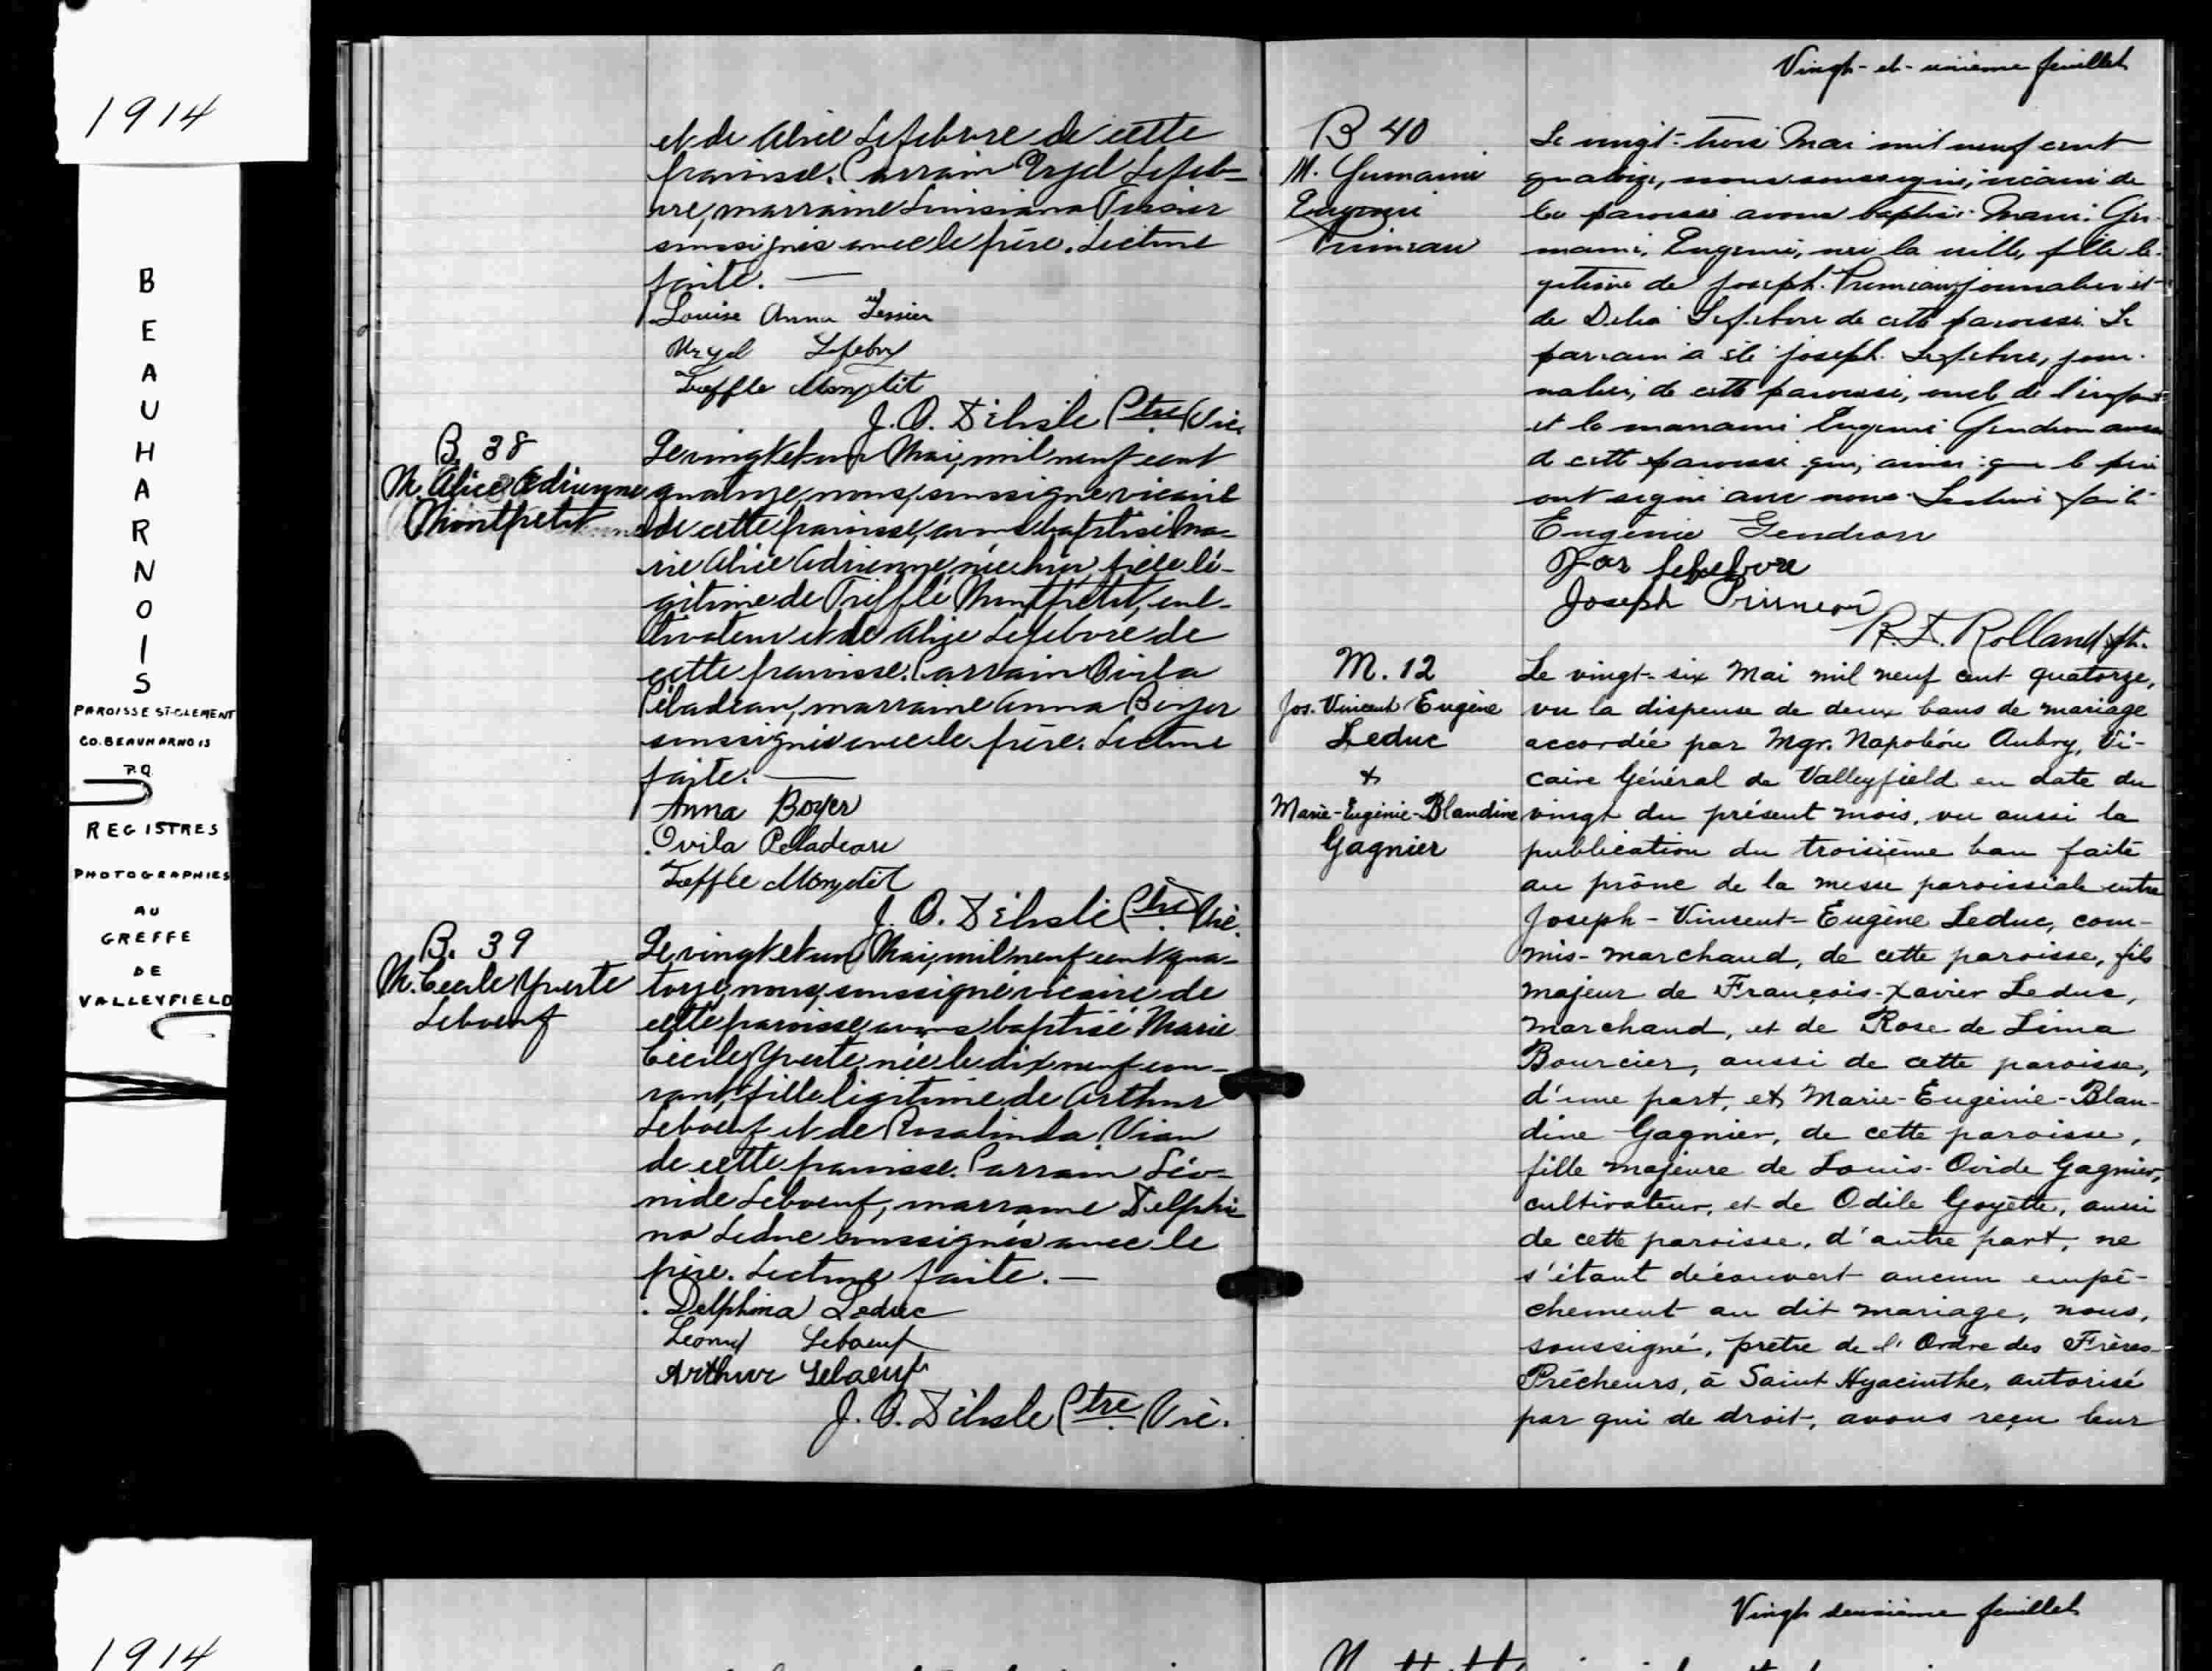 1914
BEAUHARNOIS
PAROISSE ST-CLEMENT
CO. BEAUHARNOIS
P.Q.
REGISTRES
PHOTOGRAPHIES
AU
GREFFE
DE
VALLEYFIELD
et de Alice Lefebvre de cette
paroisse. Parrain Urgel Lefeb-
vre, marraine Tessier
soussignés avec le père. Lecture
faite. —
Louise Anna Tessier
Urgel Lefebvre
Treffle Montpetit
J. O. Délisle Ptre Vic.
B. 38
M. Alice Adrienne
Montpetit
Le vingt et un Mai, mil neuf cent
quatorze, nous, soussigné vicaire
de cette paroisse, avons baptisé Ma-
rie Alice Adrienne, née hier fille lé-
gitime de Trefflé Montpetit, cul-
tivateur et de Alice Lefebvre de
cette paroisse. Parrain Ovila
Péladeau, marraine Anna Boyer
soussignés avec le père. Lecture
faite. —
Anna Boyer
Ovila Pelladeau
Treffle Montpetit
J. O. Délisle Ptre Vic.
B. 39
M. Cecile Yvette
Leboeuf
Le vingt et un Mai, mil neuf cent qua-
torze, nous, soussigné vicaire de
cette paroisse, avons baptisé Marie
Cécile Yvette, née le dix neuf cou-
rant, fille légitime de Arthur
Leboeuf et de Rosalinda Viau
de cette paroisse. Parrain Léo-
nide Leboeuf, marraine Delphi-
na Leduc soussignés avec le
père. Lecture faite. —
Delphina Leduc
Leboeuf
Arthur Leboeuf
J. O. Délisle Ptre Vic.
Vingt-et-unième feuillet
B 40
M. Germaine
Eugénie
Primeau
Le vingt-trois Mai mil neuf cent
quatorze, nous soussigné, vicaire de
la paroisse avons baptisé Marie Ger-
maine, Eugénie, née la veille, fille lé-
gitime de Joseph Primeau, journalier et
de Delia Lefebvre de cette paroisse. Le
parrain a été Joseph Lefebvre, jour-
nalier, de cette paroisse, oncle de l'enfant
et la marraine Eugénie Gendron aussi
de cette paroisse qui, ainsi que le père
ont signé avec nous. Lecture faite
Eugénie Gendron
Jos Lefebvre
Joseph Primeau
R. Rolland ptr.
M. 12
Jos. Vincent Eugène
Leduc
&
Marie-Eugénie-Blandine
Gagnier
Le vingt-six Mai mil neuf cent quatorze,
vu la dispense de deux bans de mariage
accordée par Mgr. Napoléon Aubry, Vi-
caire Général de Valleyfield en date du
vingt du présent mois, vu aussi la
publication du troisième ban faite
au prône de la messe paroissiale entre
Joseph-Vincent-Eugène Leduc, com-
mis-marchand, de cette paroisse, fils
majeur de François-Xavier Leduc,
marchand, et de Rose de Lima
Bourcier, aussi de cette paroisse,
d'une part, et Marie-Eugénie-Blan-
dine Gagnier, de cette paroisse,
fille majeure de Louis-Ovide Gagnier,
cultivateur, et de Odile Goyette, aussi
de cette paroisse, d'autre part, ne
s'étant découvert aucun empê-
chement au dit mariage, nous,
soussigné, prêtre de l'Ordre des Frères
Prêcheurs, à Saint Hyacinthe, autorisé
par qui de droit, avons reçu leur
1914
Vingt deuxième feuillet